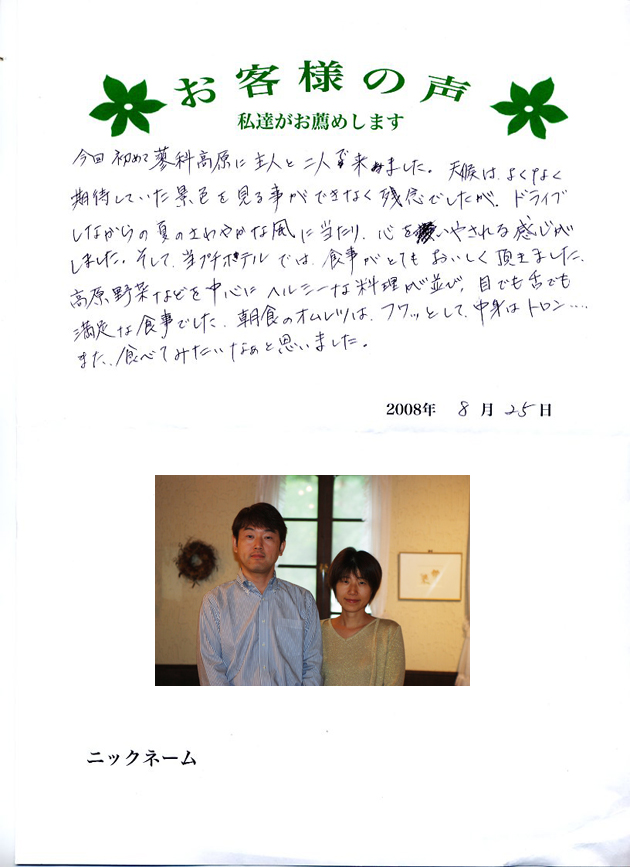 お客様の声
私達がお薦めします
今回初めて蓼科高原に主人と二人で来ました。天候は、よくなく
期待していた景色を見る事ができなく残念でしたが、ドライブ
しながらの夏のさわやかな風に当たり、心をいやされる感じが
しました。そして、当プチホテルでは、食事がとてもおいしく頂きました。
高原野菜などを中心にヘルシーな料理が並び、目でも舌でも
満足な食事でした。朝食のオムレツは、フワッとして、中身はトロン‥‥
また、食べてみたいなぁと思いました。
2008年 8月 25日
ニックネーム